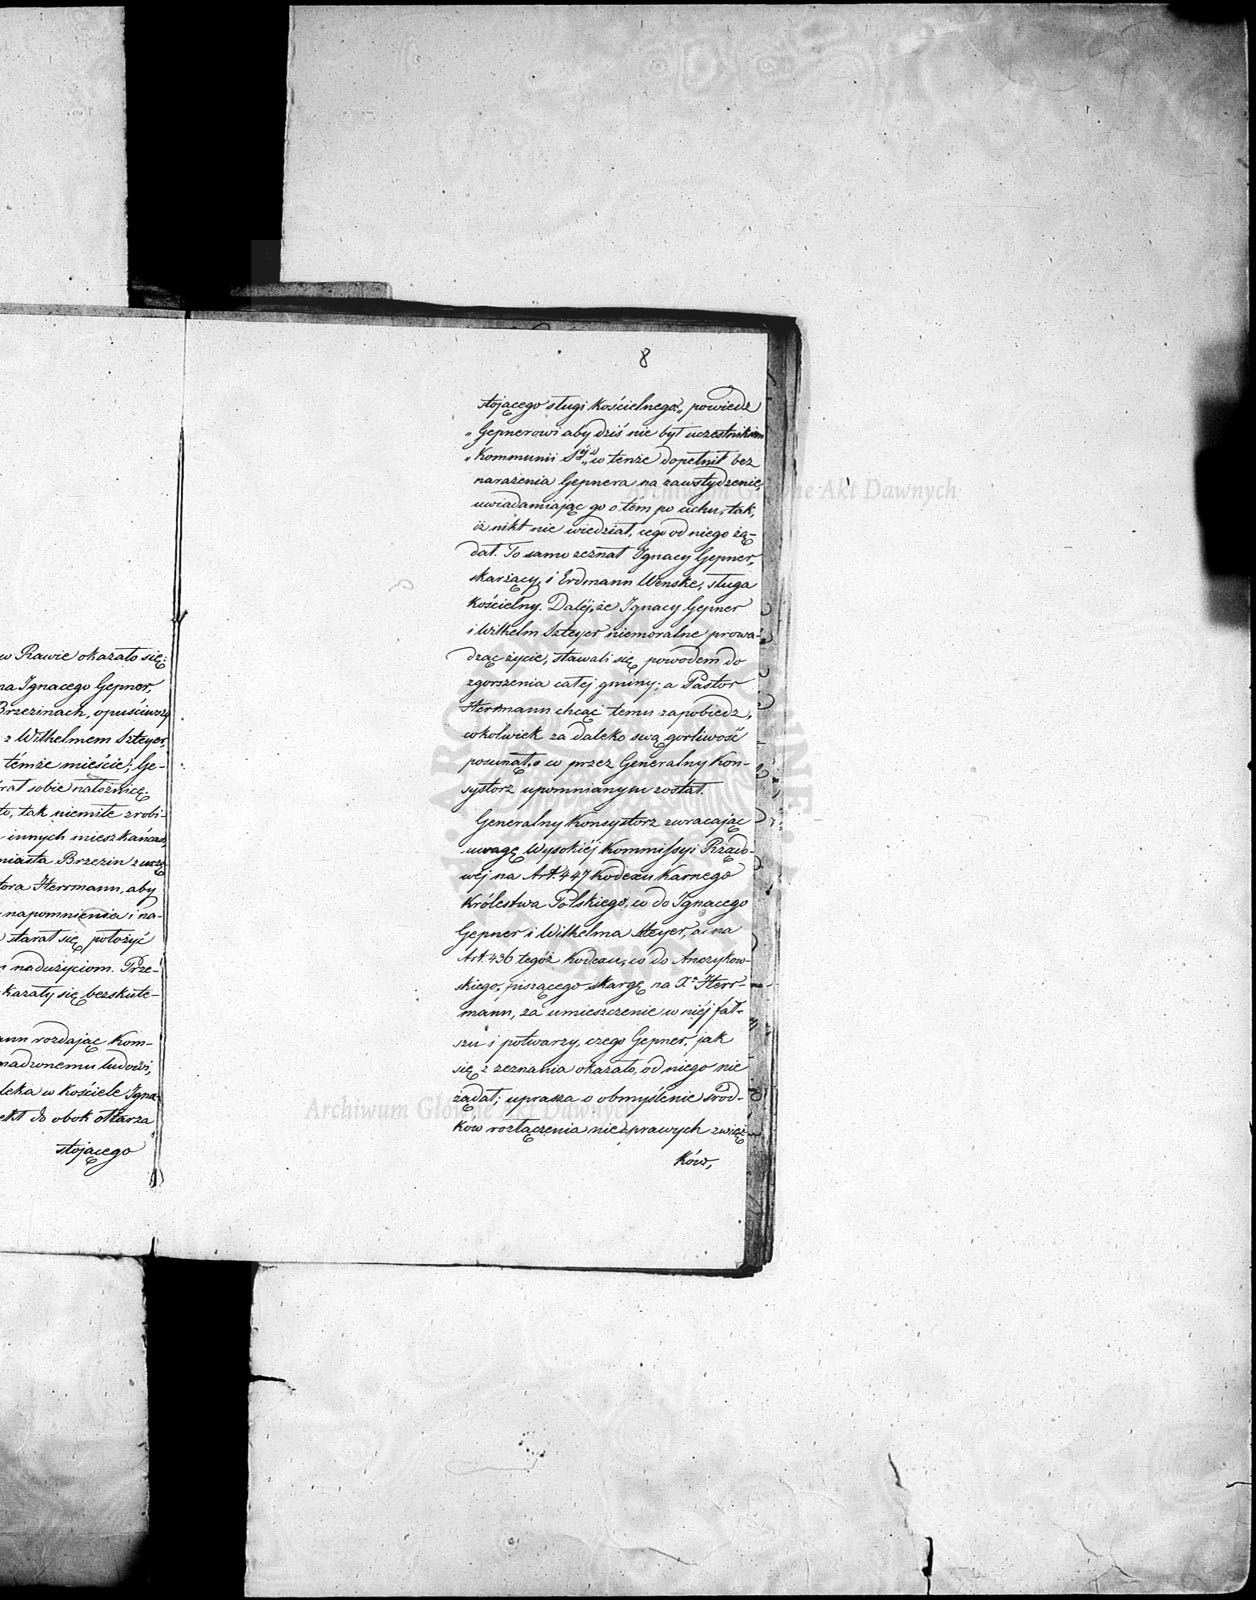 w Rawie okazało się:
na Ignacego Gepner,
Brzezinach, opuściwszy
z Wilhelmem Szteyer,
témże mieście; Ge-
rał sobie nałożnicę;
to, tak niemiłe zrobi-
innych mieszkańców,
miasta Brzezin
tora Herrmann, aby
napomnienia i na-
starał się położyć
nadużyciom. Prze-
kazały się bezskute-
ann rozdając Kom-
madzonemu ludowi,
leka w kościele Igna-
ekł do obok ołtarza
stojącego
8
stojącego sługi kościelnego „powiedz
„Gepnerowi aby dziś nie był uczestnikiem
„Kommunii Stéj" co tenże dopełnił bez
narażenia Gepnera na zawstydzenie,
uwiadamiając go o tem po uchu, tak,
iż nikt nie wiedział, czego od niego żą-
dał. To samo zeznał Ignacy Gepner,
skarżący, i Erdmann Wenske, sługa
kościelny. Daléj, że Ignacy Gepner
i Wilhelm Szteyer niemoralne prowa-
dząc życie, stawali się powodem do
zgorszenia całéj gminy; a Pastor
Herrmann chcąc temu zapobiedz,
cokolwiek za daleko swą gorliwość
posunął, o co przez Generalny Kon-
systorz upomnianym został.
Generalny Konsystorz zwracając
uwagę Wysokiéj Kommissyi Rządo-
wéj na Art. 447 Kodexu Karnego
Królestwa Polskiego, co do Ignacego
Gepner i Wilhelma Szteyer, a na
Art. 436 tegóż Kodexu, co do Anczykow-
skiego, piszącego skargę na Xa Herr-
mann, za umieszczenie w niéj fał-
szu i potwarzy, czego Gepner, jak
się z zeznania okazało, od niego nie
żądał; uprasza o obmyślenie środ-
ków rozłączenia nieprawych związ-
ków,
Archiwum Główne Akt Dawnych
Archiwum Główne Akt Dawnych